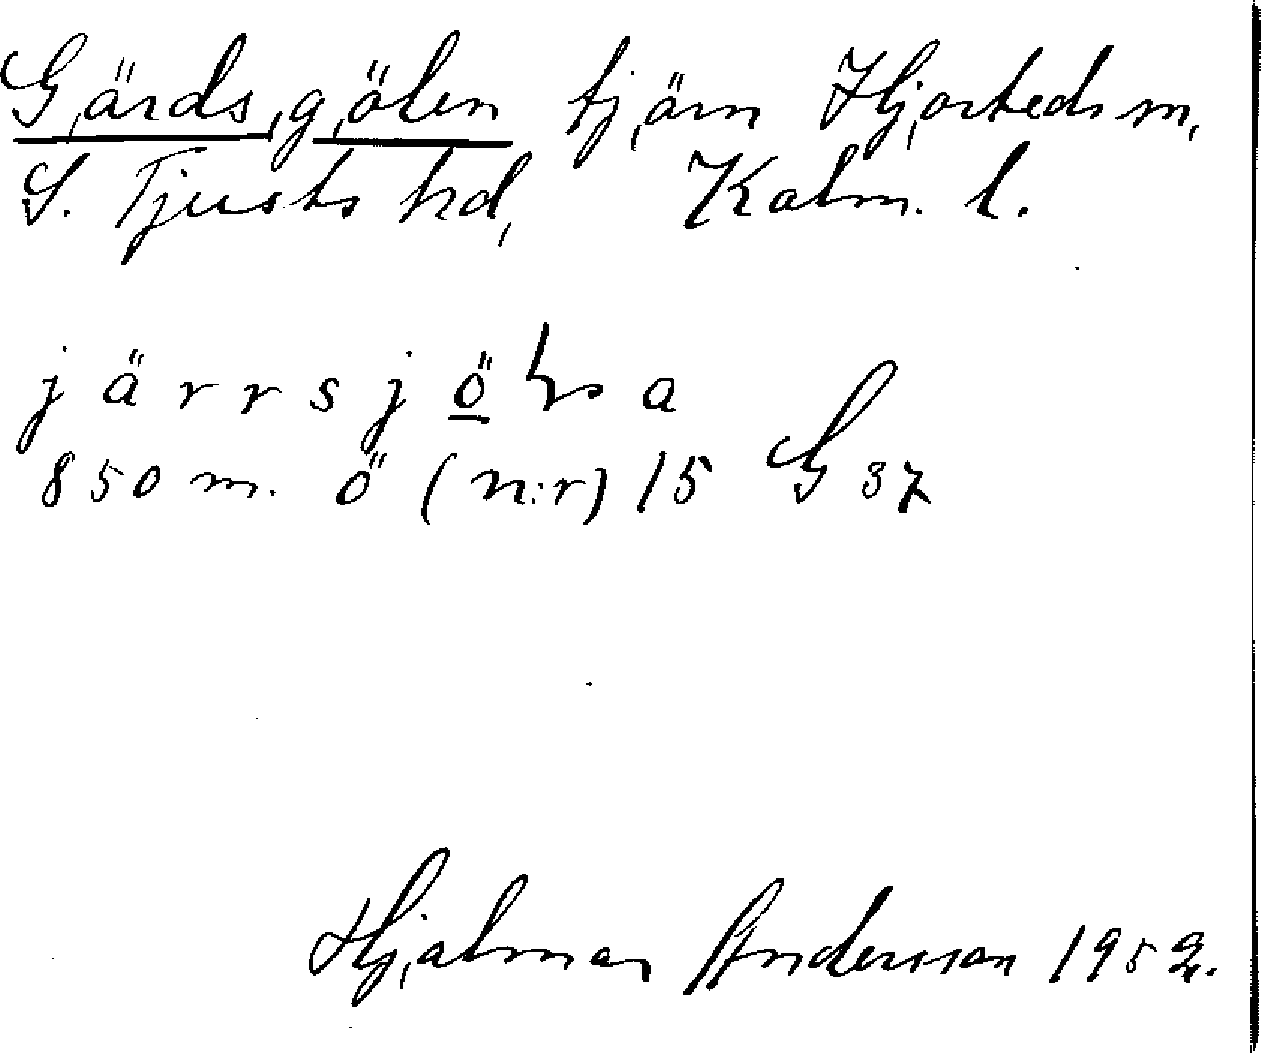 Gärdsgölen tjärn Hjorteds m,
S. Tjusts hd, Kalm. l.
850 m. Ö (n:r) 15 G 37
Hjalmar Andersson 1952.